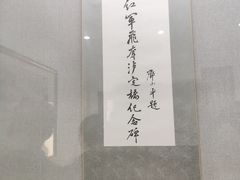 红军飞夺泸定桥纪念碑
邓小平题